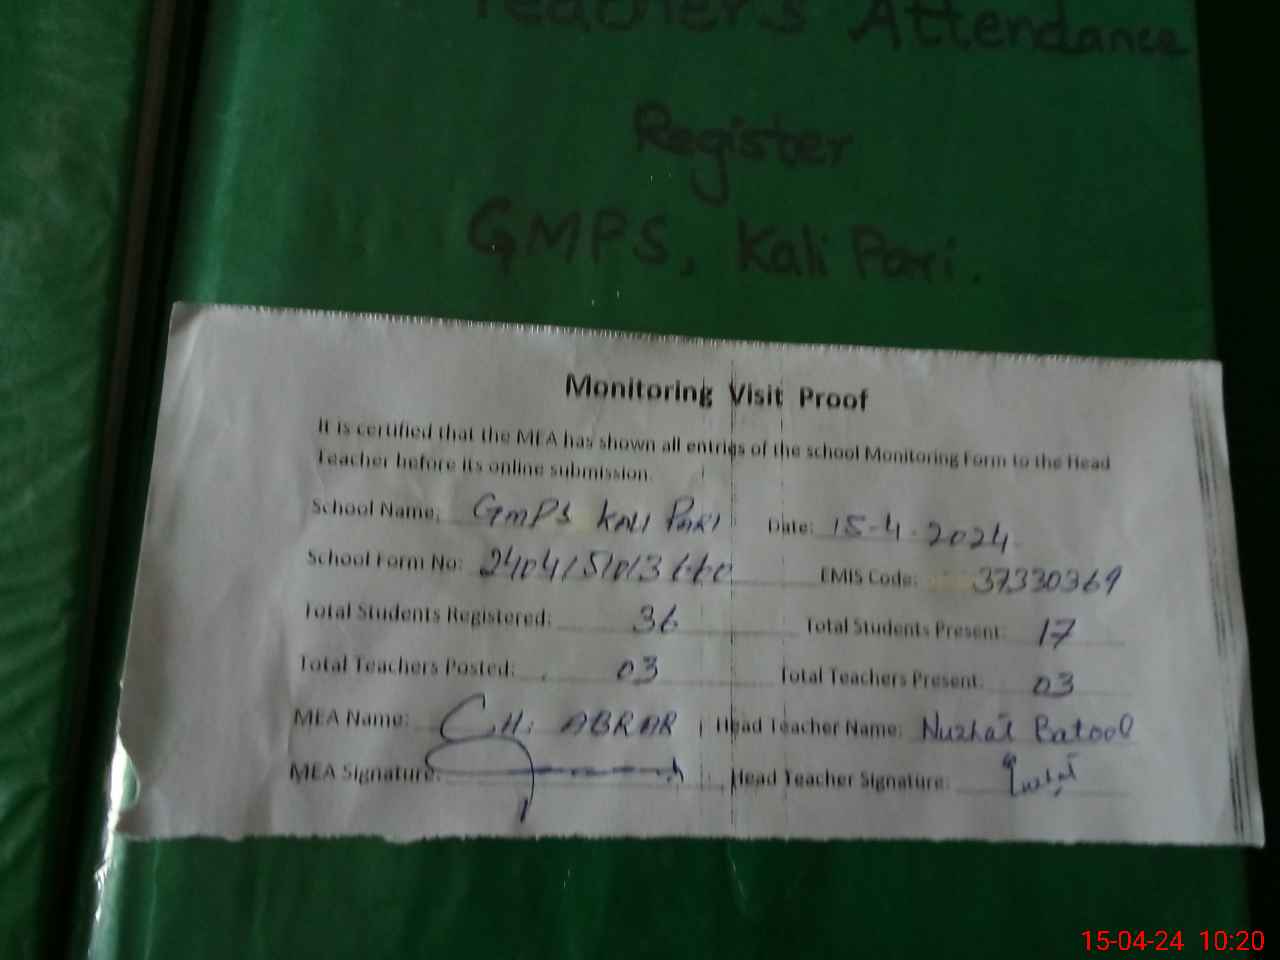 Teacher's Attendance
Register
GMPS, Kali Pari.
Monitoring Visit Proof
It is certified that the MEA has shown all entries of the school Monitoring Form to the Head
Teacher before its online submission.
School Name: GMPS KALI PARI Date: 15-4-2024
School Form No: EMIS Code: 37330369
Total Students Registered: 36 Total Students Present: 17
Total Teachers Posted: 03 Total Teachers Present: 03
MEA Name: CH. ABRAR Head Teacher Name: Nuzhat Batool
MEA Signature: Head Teacher Signature:
15-04-24 10:20